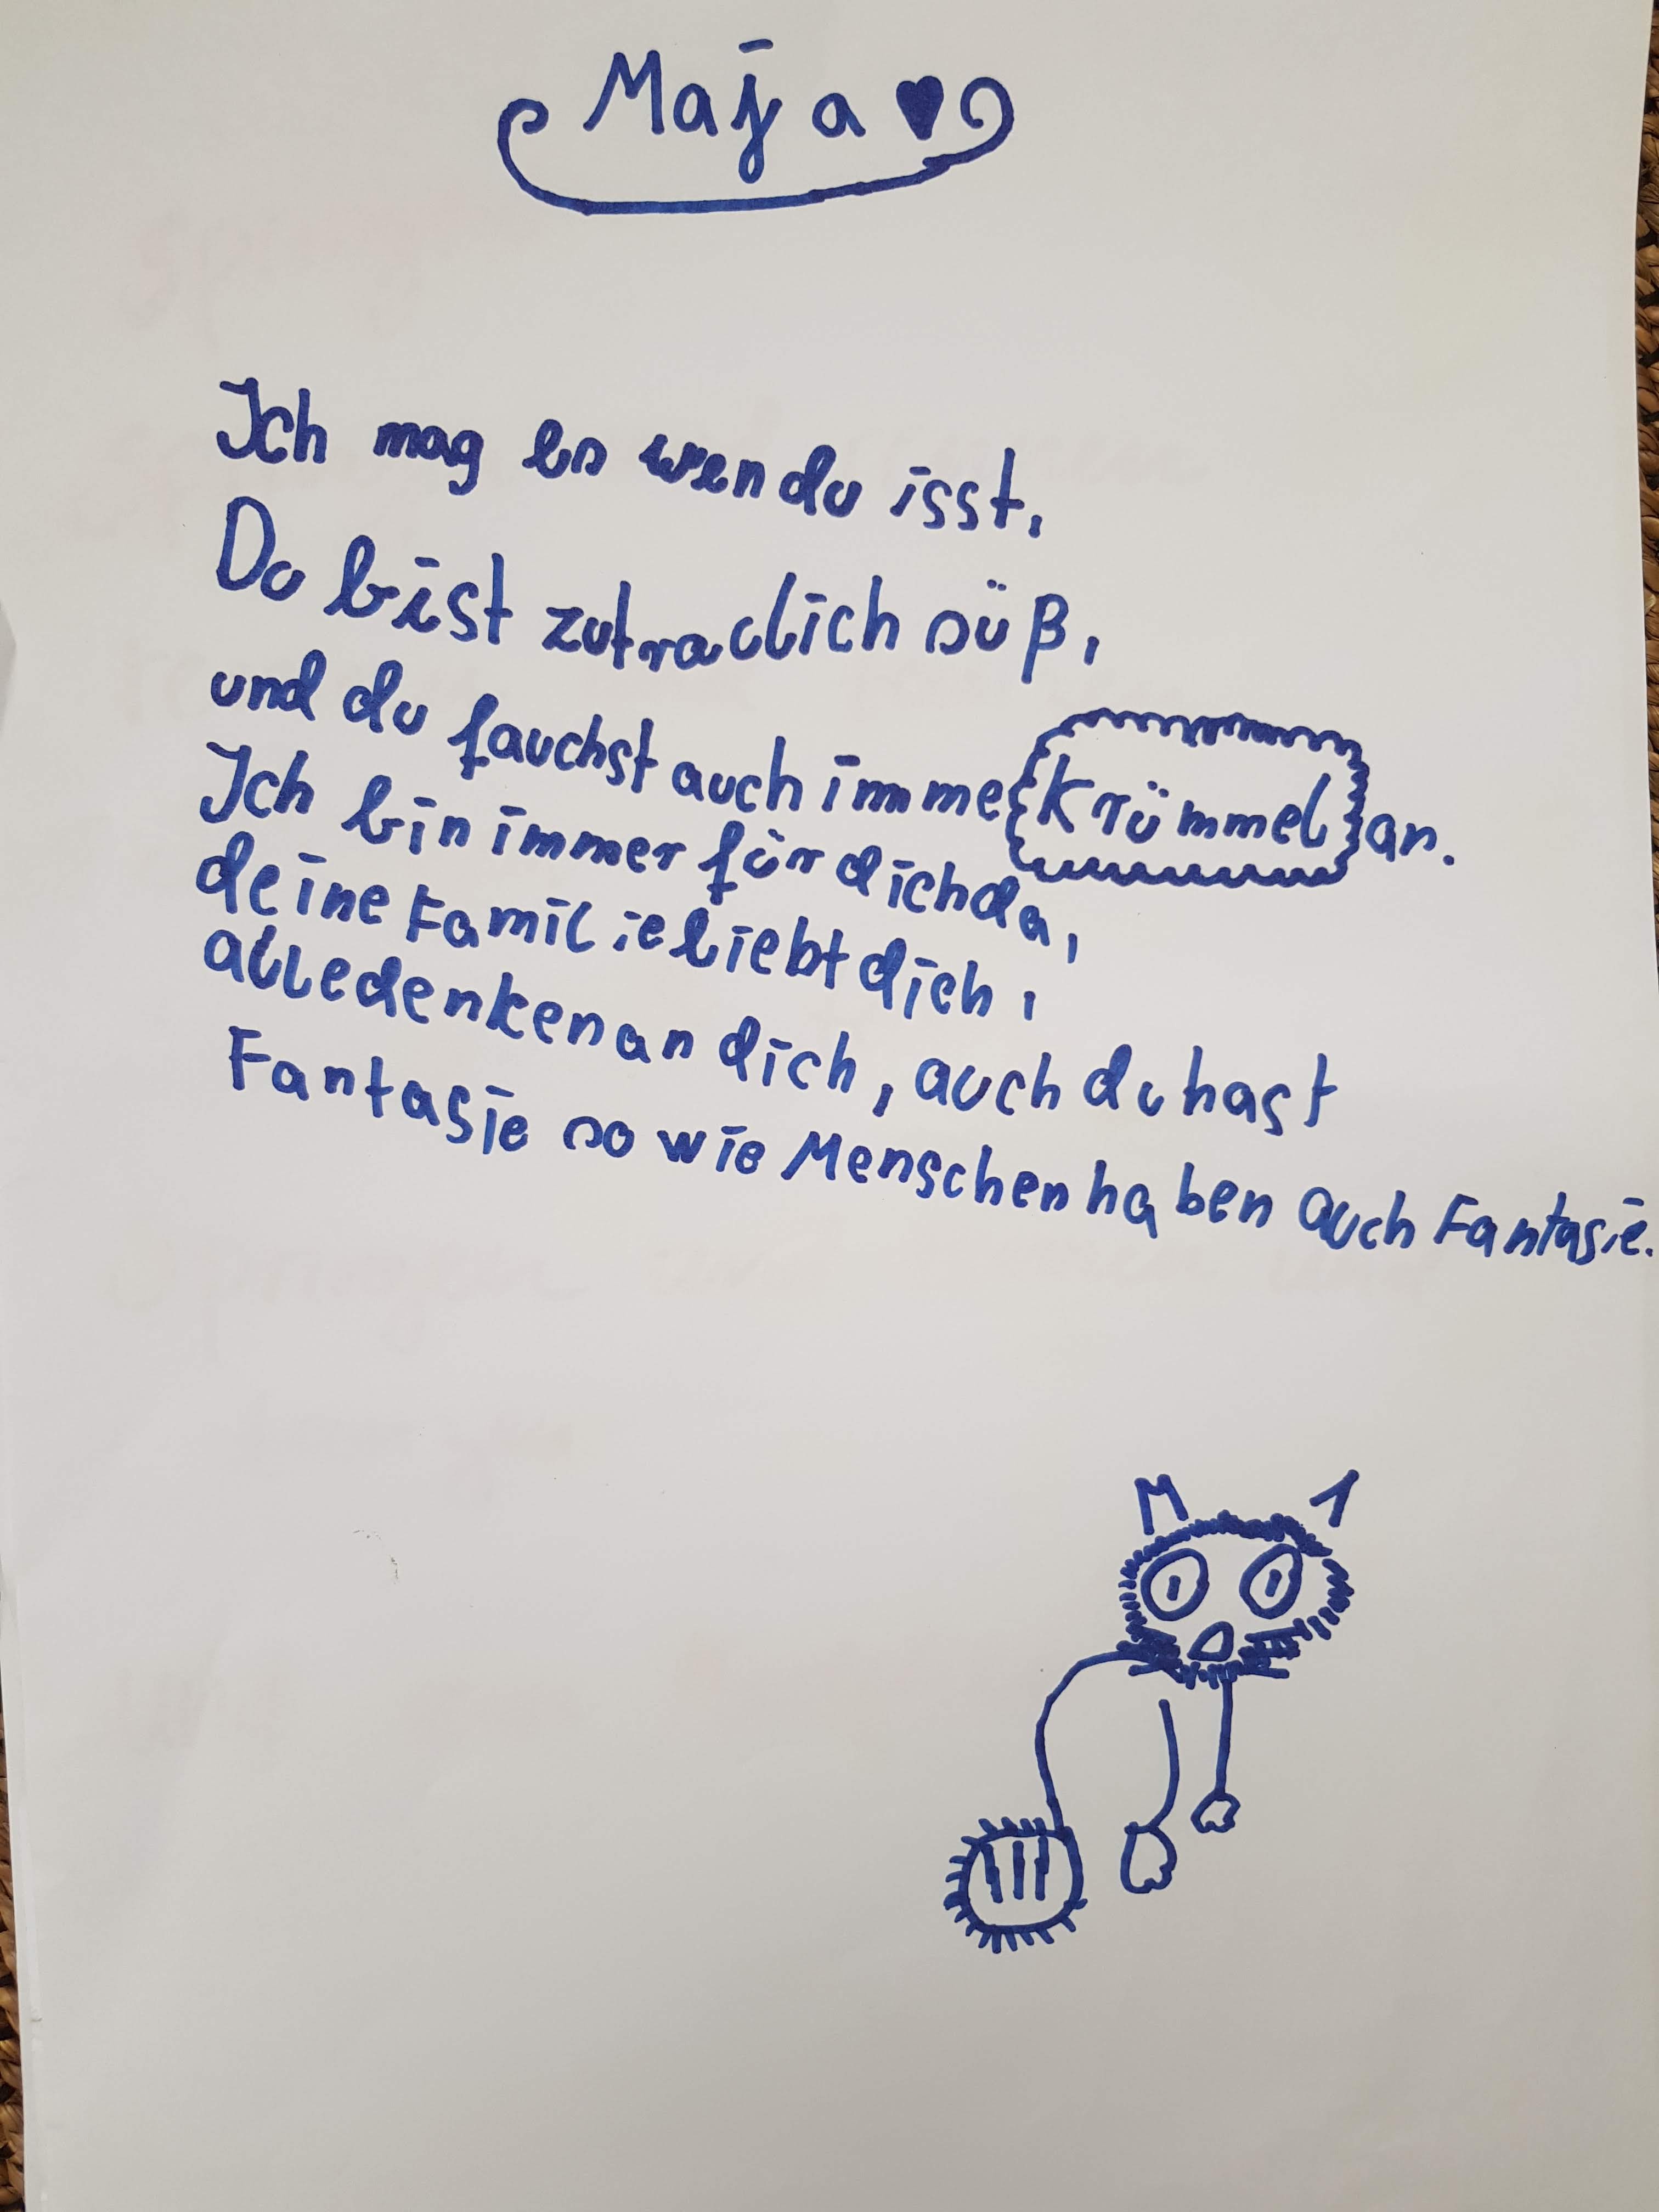 Maja
Ich mag es wen du isst,
Du bist zutraclich süß,
und du fauchst auch imme Krümmel an.
Ich bin immer für dich da,
deine Familie liebt dich,
alle denken an dich, auch du hast
Fantasie so wie Menschen haben auch Fantasie.